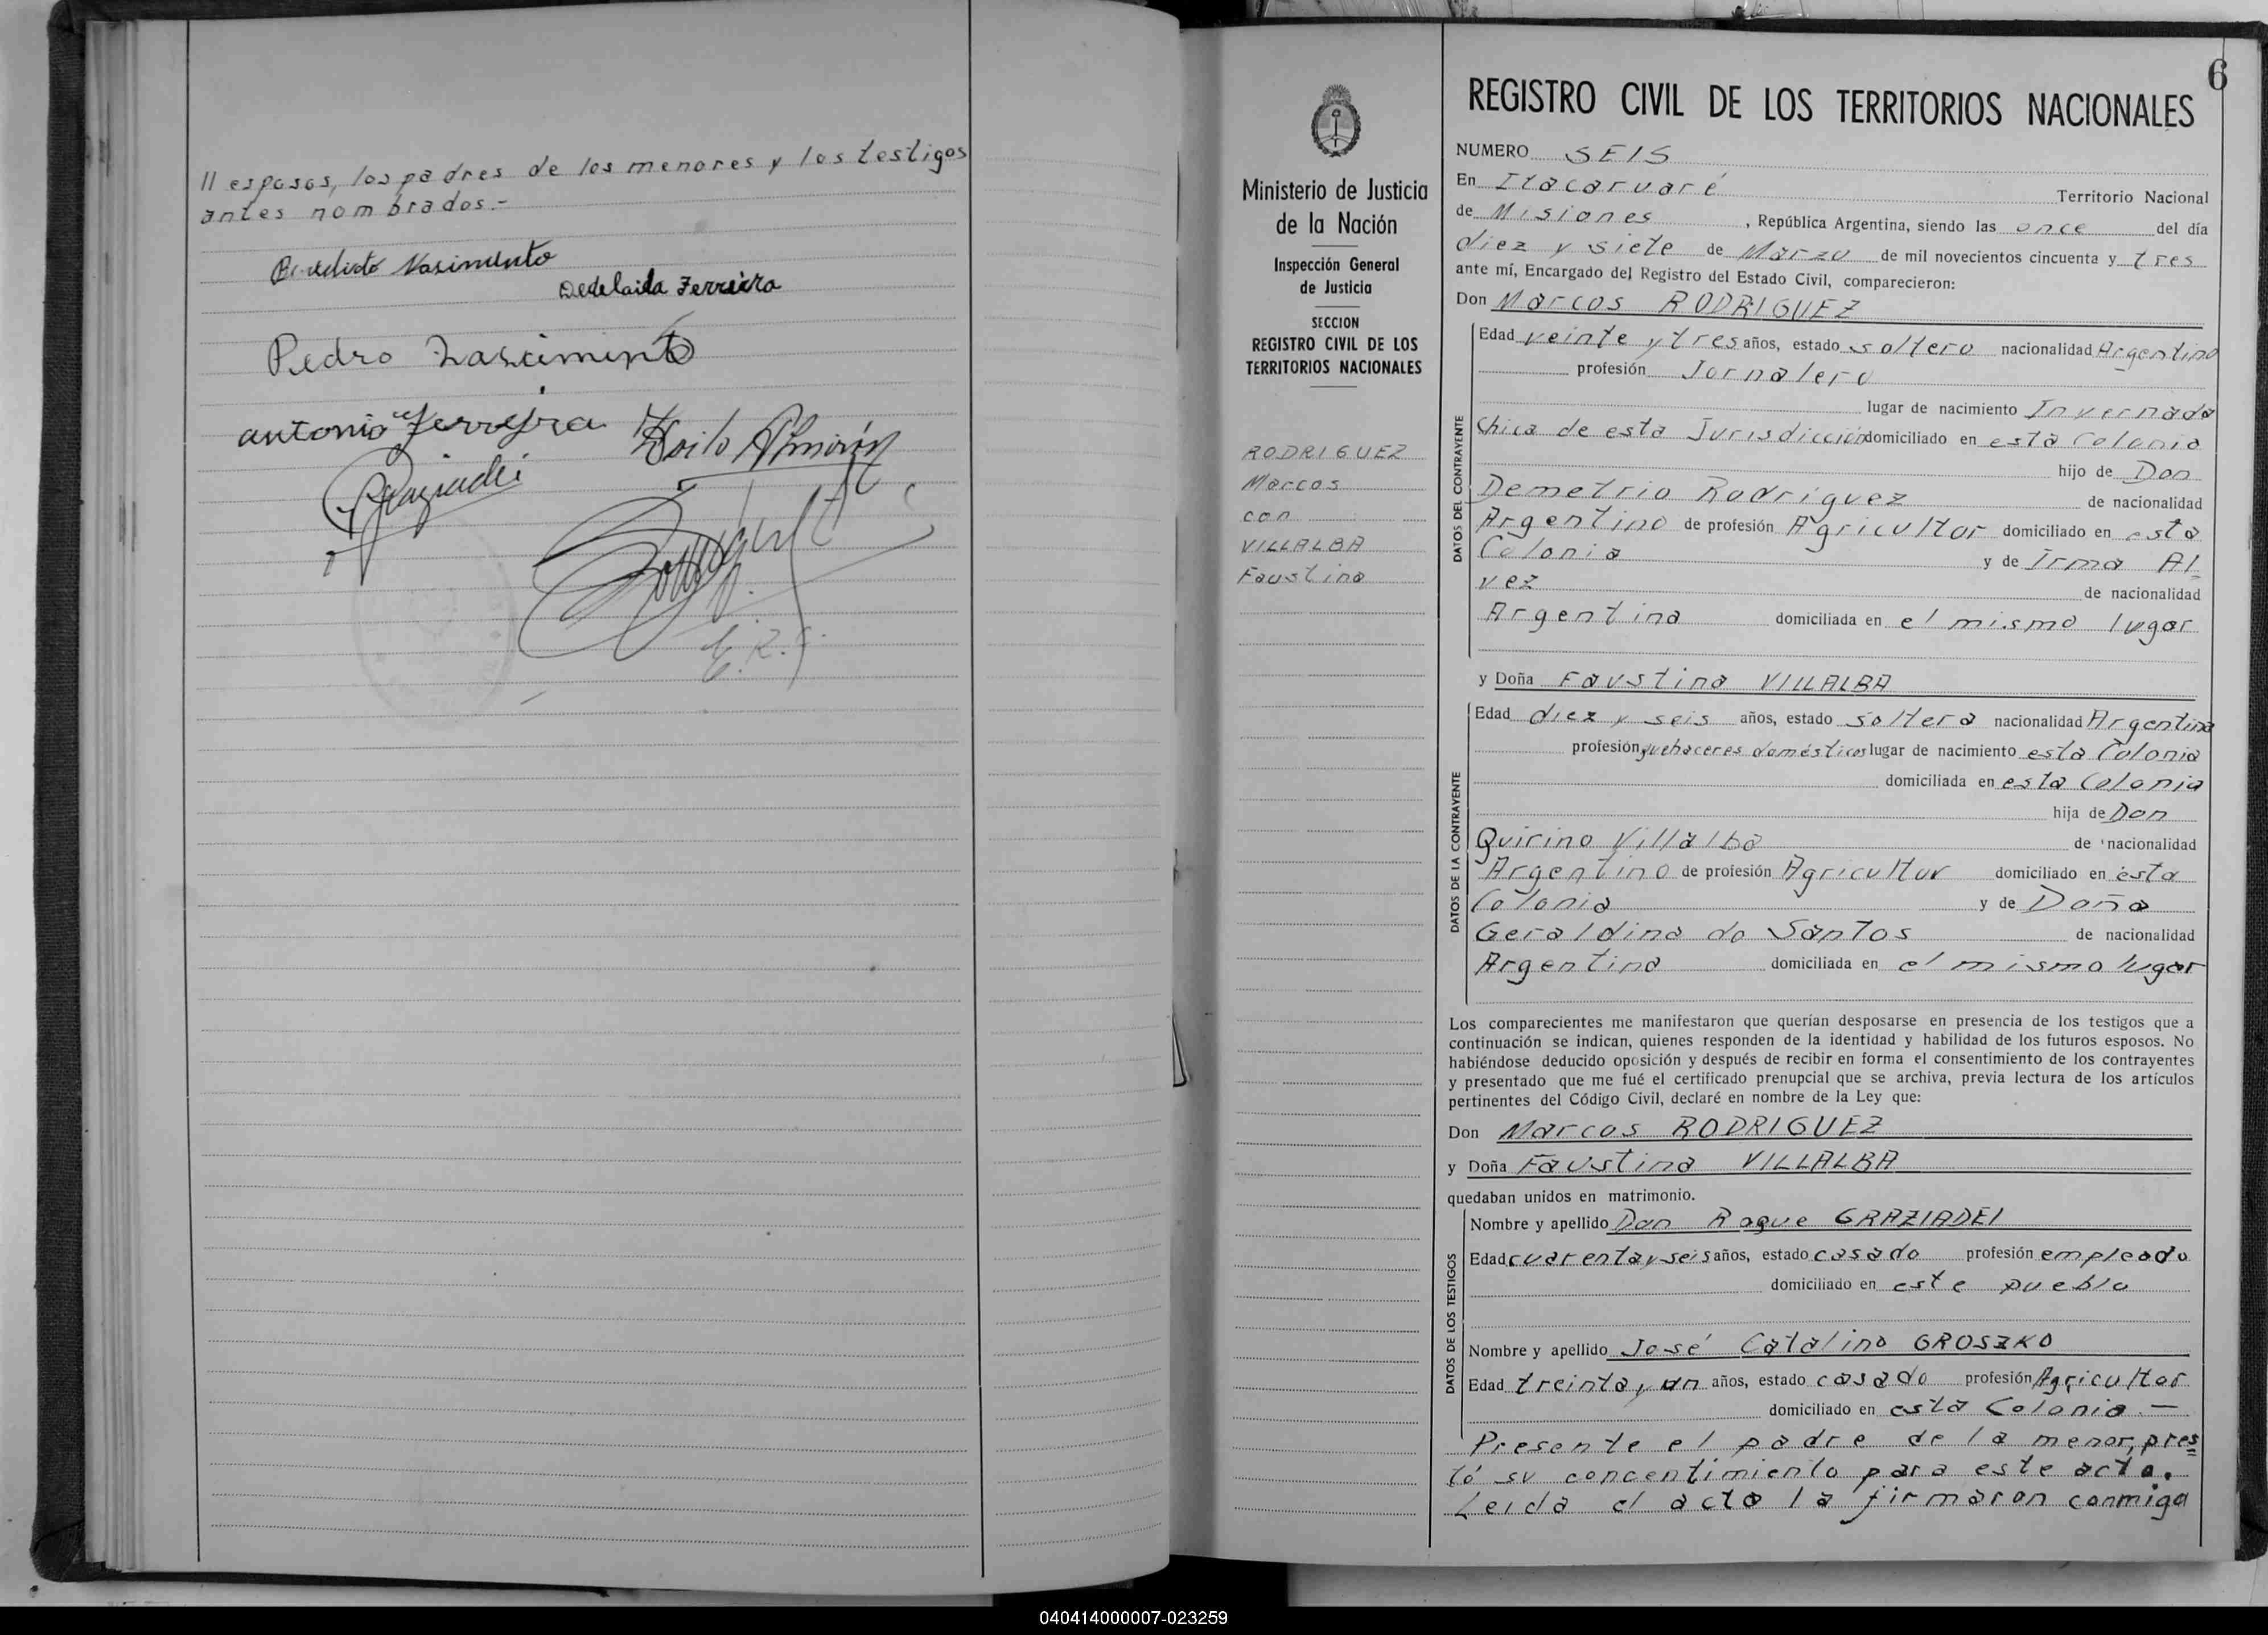 // esposos, los padres de los menores y los testigos
antes nombrados.-
Benedicto Nasimento
Adelaida Ferreira
Pedro Nascimento
antonio Ferreira Zoilo Almirón
RGraziadei
E.R.C.
6
Ministerio de Justicia
de la Nación
Inspección General
de Justicia
SECCION
REGISTRO CIVIL DE LOS
TERRITORIOS NACIONALES
RODRIGUEZ
Marcos
con
VILLALBA
Faustina
REGISTRO CIVIL DE LOS TERRITORIOS NACIONALES
NUMERO SEIS
En Itacaruaré Territorio Nacional
de Misiones, República Argentina, siendo las once del día
diez y siete de Marzo de mil novecientos cincuenta y tres
ante mí, Encargado del Registro del Estado Civil, comparecieron:
Don Marcos RODRIGUEZ
DATOS DEL CONTRAYENTE
Edad veinte y tres años, estado soltero nacionalidad Argentino
profesión Jornalero
lugar de nacimiento Invernada
Chica de esta Jurisdicción domiciliado en esta Colonia
hijo de Don
Demetrio Rodriguez de nacionalidad
Argentino de profesión Agricultor domiciliado en esta
Colonia y de Irma Al
vez de nacionalidad
Argentina domiciliada en el mismo lugar
y Doña Faustina VILLALBA
DATOS DE LA CONTRAYENTE
Edad diez y seis años, estado soltera nacionalidad Argentina
profesión quehaceres domésticos lugar de nacimiento esta Colonia
domiciliada en esta Colonia
hija de Don
Quirino Villalba de nacionalidad
Argentino de profesión Agricultor domiciliado en esta
Colonia y de Doña
Geraldina do Santos de nacionalidad
Argentina domiciliada en el mismo lugar
Los comparecientes me manifestaron que querían desposarse en presencia de los testigos que a
continuación se indican, quienes responden de la identidad y habilidad de los futuros esposos. No
habiéndose deducido oposición y después de recibir en forma el consentimiento de los contrayentes
y presentado que me fué el certificado prenupcial que se archiva, previa lectura de los artículos
pertinentes del Código Civil, declaré en nombre de la Ley que:
Don Marcos RODRIGUEZ
y Doña Faustina VILLALBA
quedaban unidos en matrimonio.
DATOS DE LOS TESTIGOS
Nombre y apellido Don Roque GRAZIADEI
Edad cuarenta y seis años, estado casado profesión empleado
domiciliado en este pueblo
Nombre y apellido José Catalino GROSZKO
Edad treinta y un años, estado casado profesión Agricultor
domiciliado en esta Colonia.-
Presente el padre de la menor, pres
tó su concentimiento para este acto.
Leida el acta la firmaron conmigo
040414000007-023259